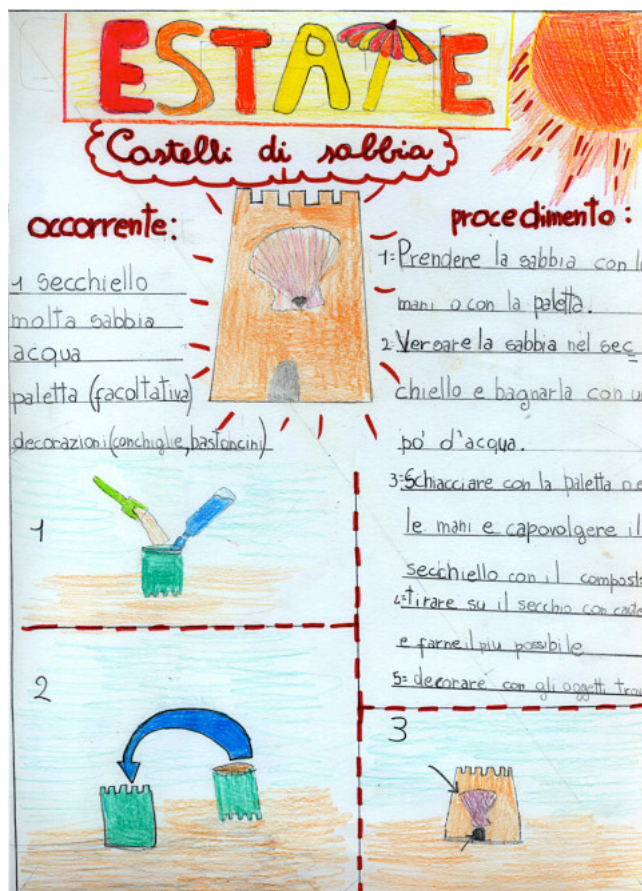 ESTATE
Castelli di sabbia
occorrente:
1 secchiello
molta sabbia
acqua
paletta (facoltativa)
decorazioni (conchiglie, bastoncini)
procedimento:
1= Prendere la sabbia con
mani o con la paletta.
2= Versare la sabbia nel sec
chiello e bagnarla con
pò d'acqua.
3= Schiacciare con la paletta
le mani e capovolgere il
secchiello con il compost
4= tirare su il secchio con
e farne il piu possibile
5= decorare con gli oggetti
1
2
3